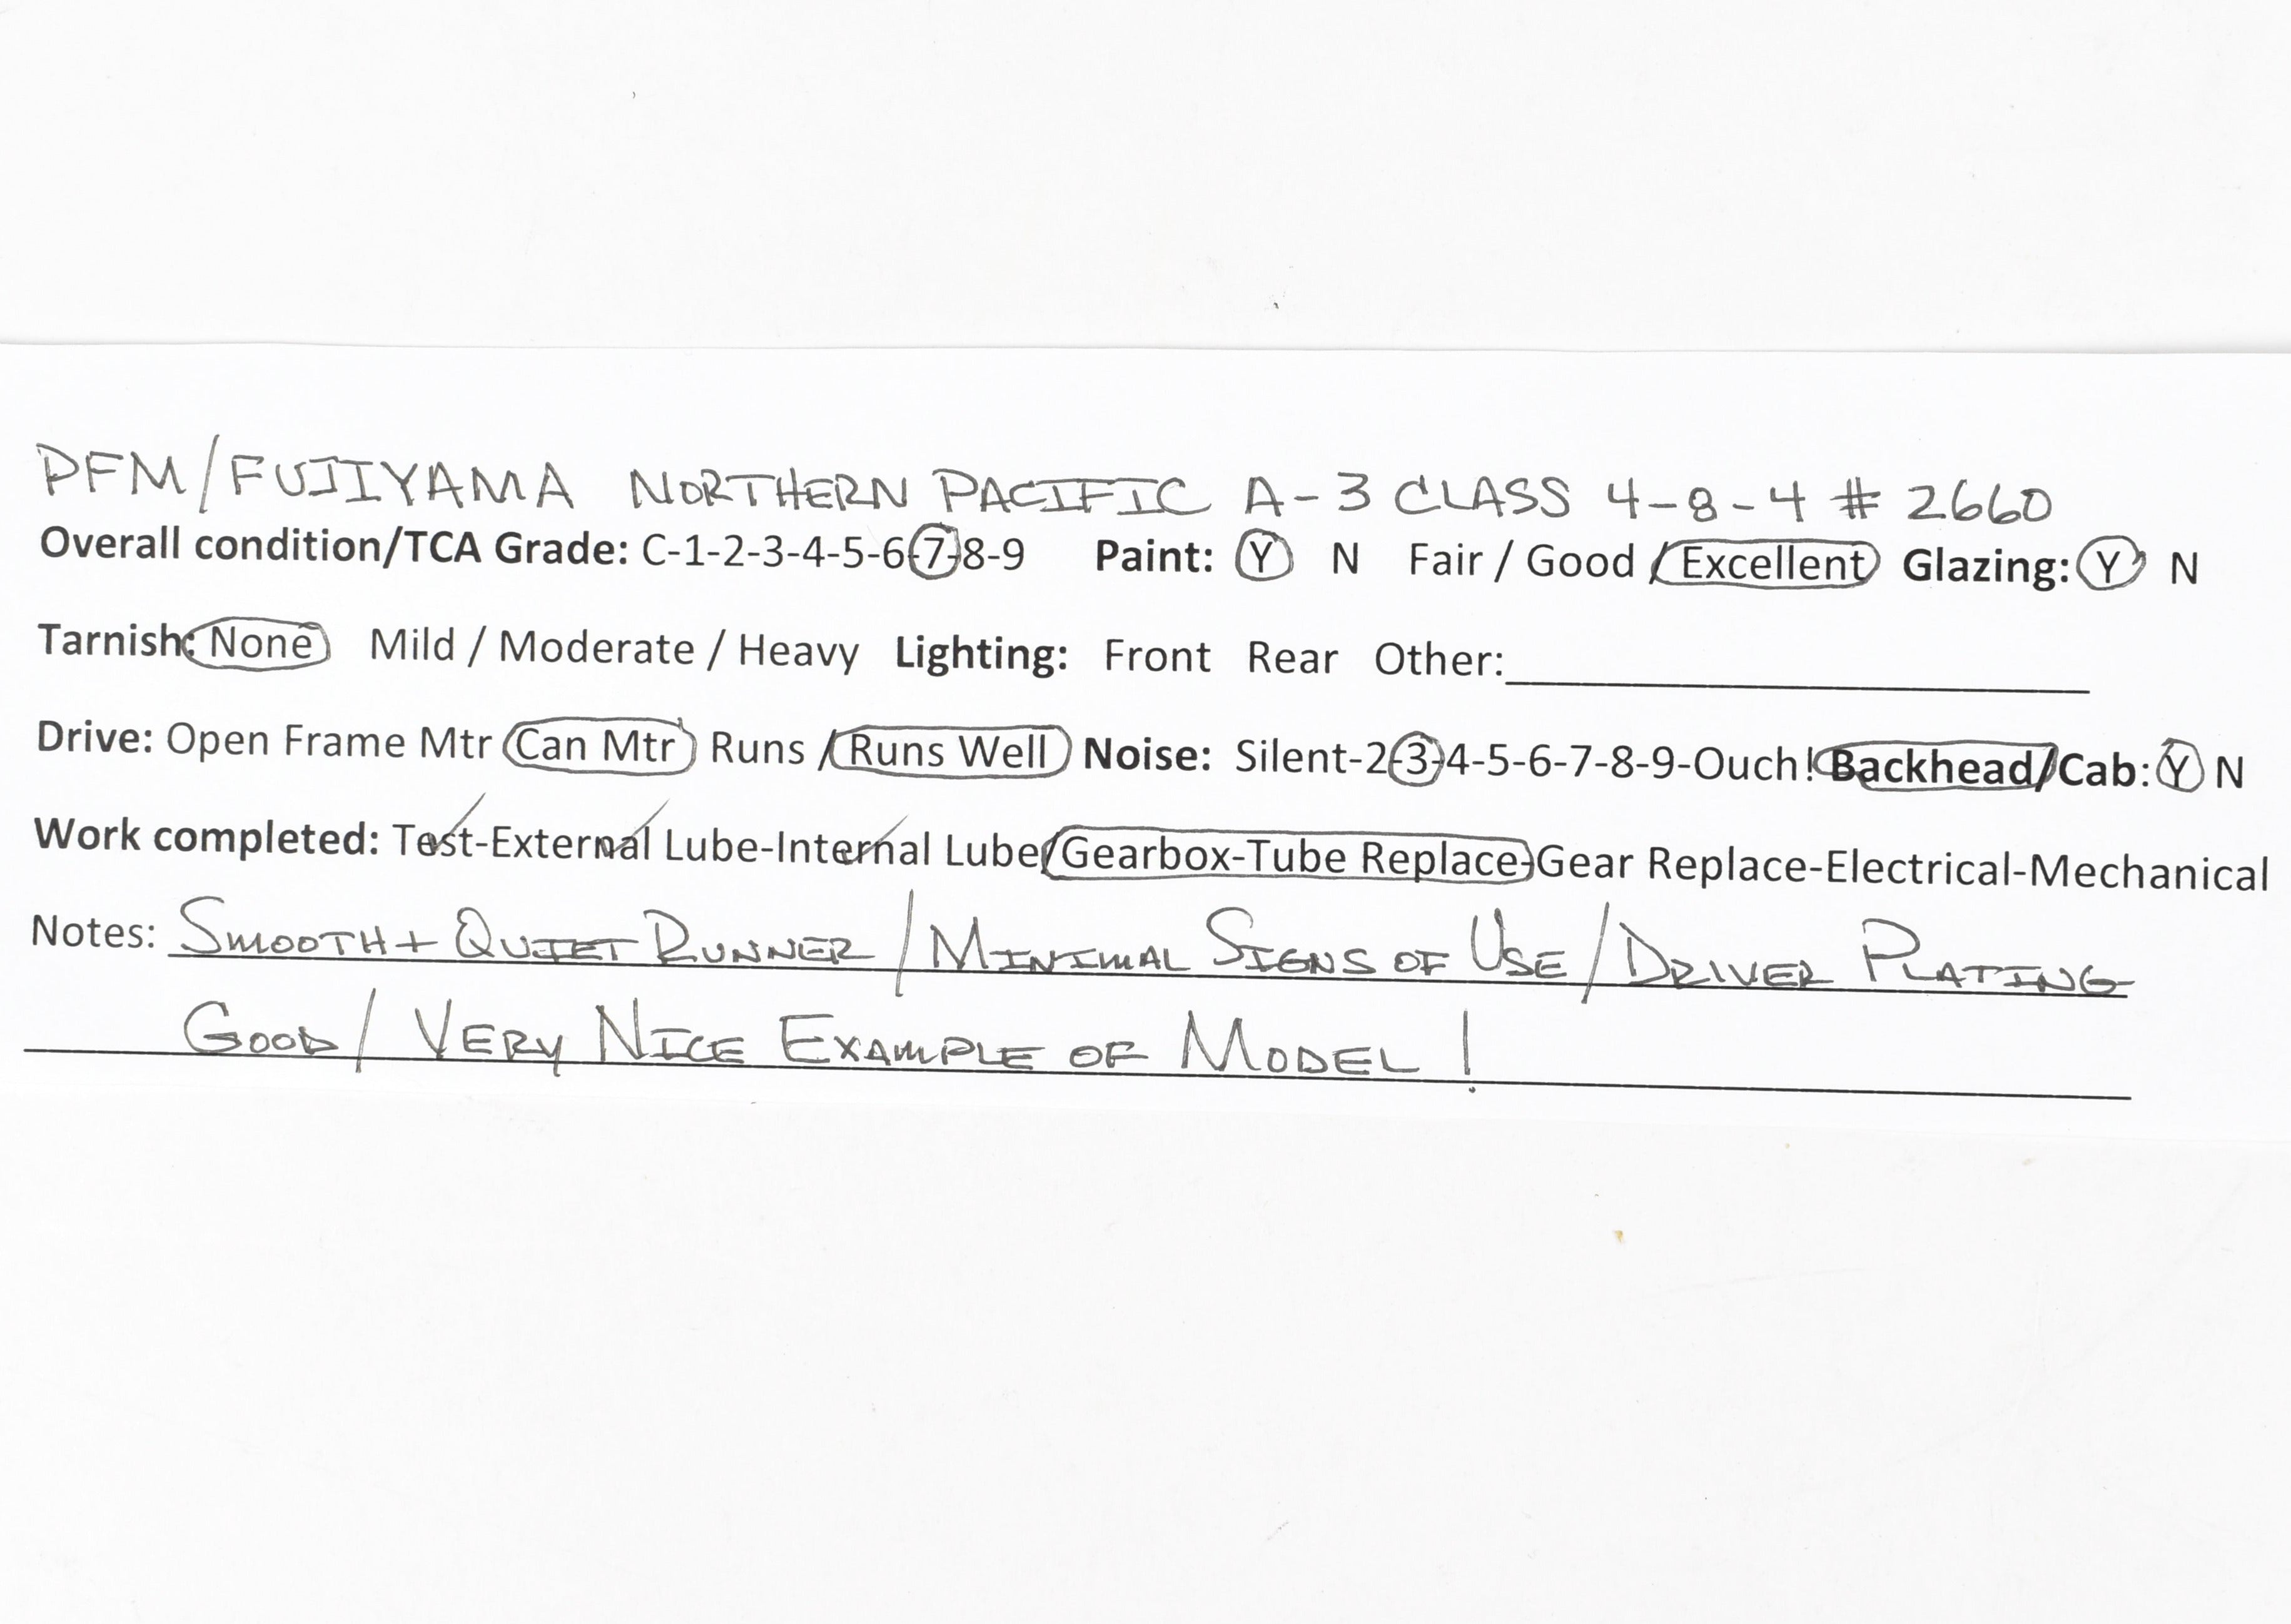 PFM/FUJIYAMA NORTHERN PACIFIC A-3 CLASS 4-8-4 # 2660
Overall condition/TCA Grade: C-1-2-3-4-5-6-7-8-9 Paint: Y N Fair / Good / Excellent Glazing: Y N
Tarnish: None Mild / Moderate / Heavy Lighting: Front Rear Other:
Drive: Open Frame Mtr Can Mtr Runs / Runs Well Noise: Silent-2-3-4-5-6-7-8-9-Ouch! Backhead/Cab: Y N
Work completed: Test-External Lube-Internal Lube/Gearbox-Tube Replace-Gear Replace-Electrical-Mechanical
Notes: SMOOTH + QUIET RUNNER / MINIMAL SIGNS OF USE / DRIVER PLATING
GOOD / VERY NICE EXAMPLE OF MODEL !